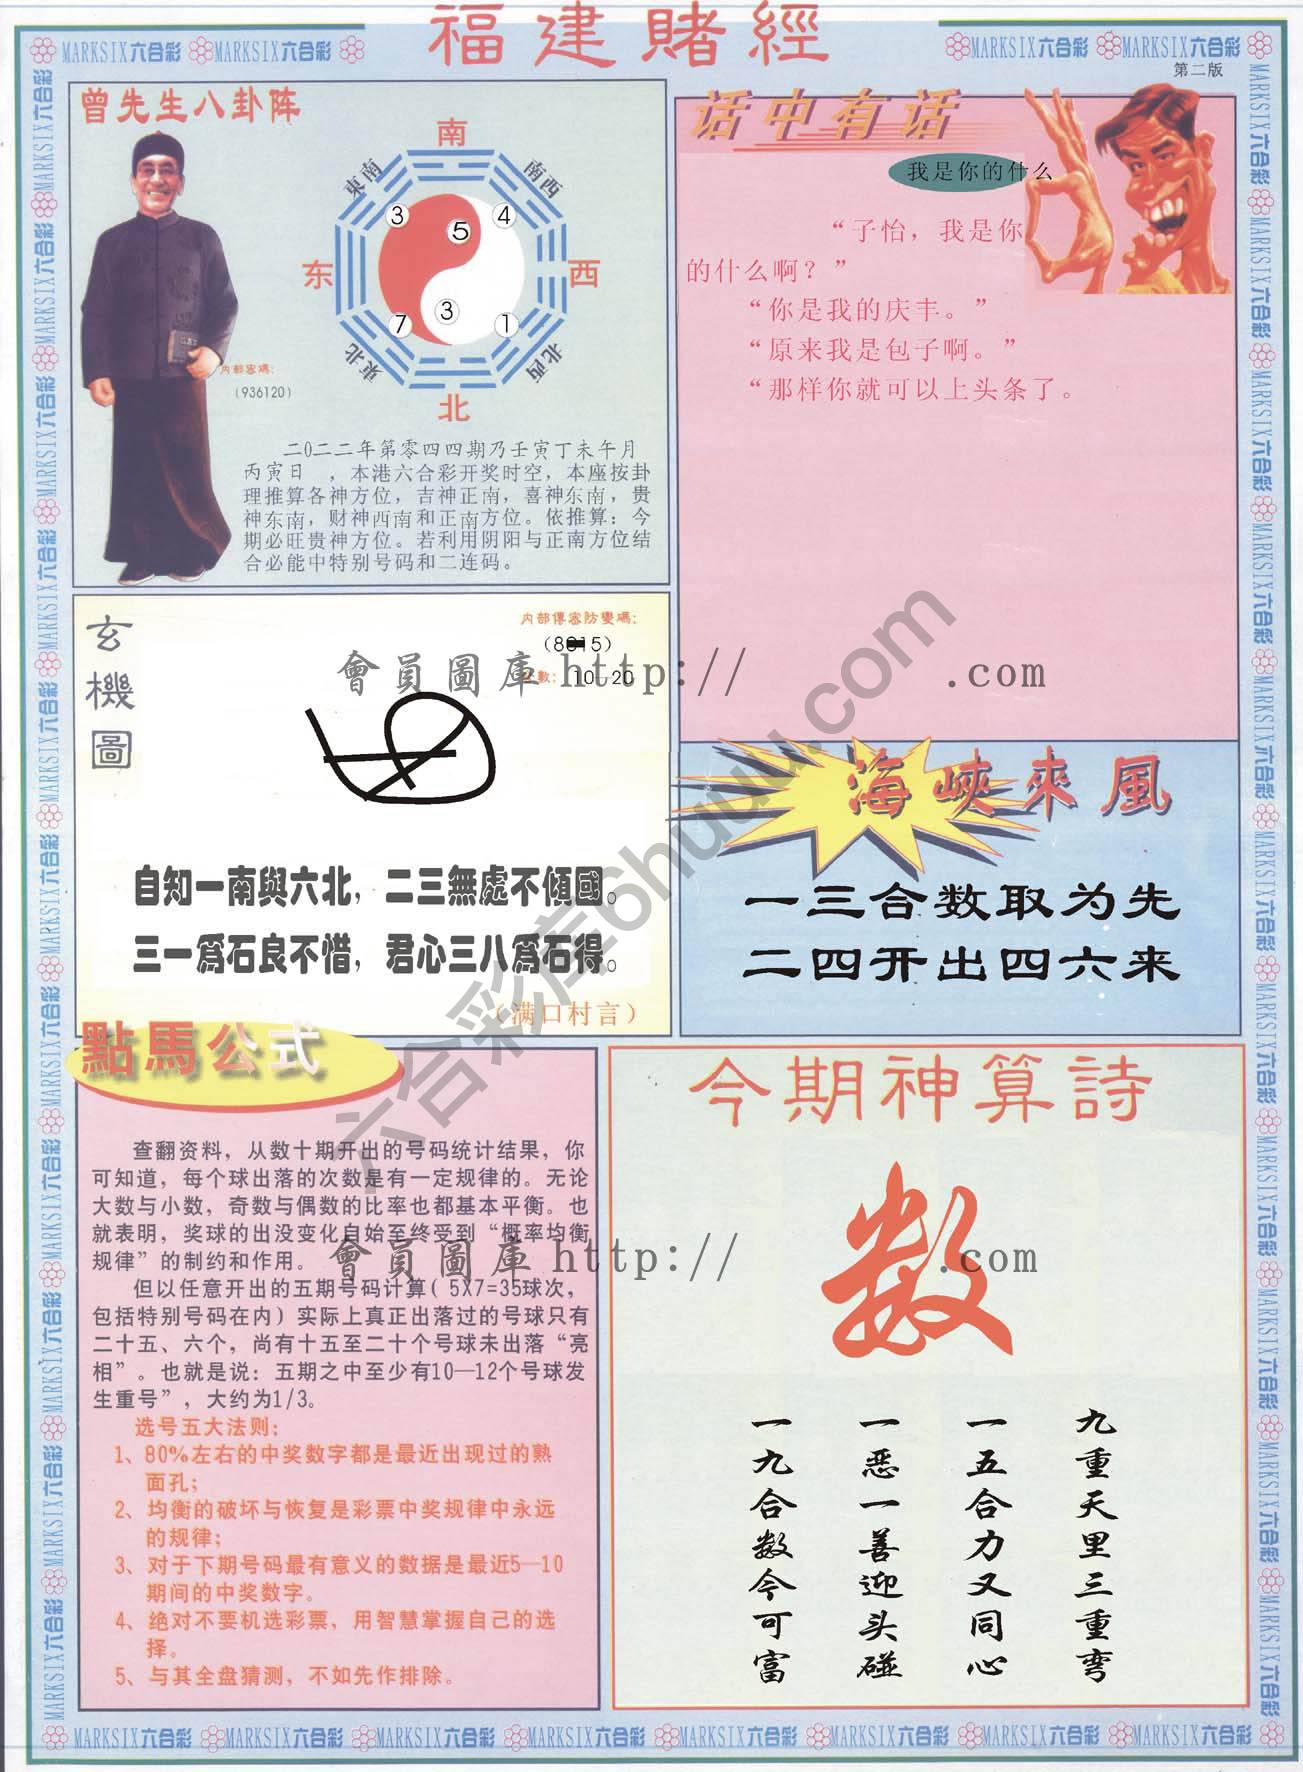 福建賭經
MARKSIX六合彩 MARKSIX六合彩
MARKSIX六合彩 MARKSIX六合彩
第二版
曾先生八卦阵
南
東南
南西
3
4
5
东
西
3
7
1
東北
北西
北
内部密碼：
（936120）
二0二二年第零四四期乃壬寅丁未午月
丙寅日 ，本港六合彩开奖时空，本座按卦
理推算各神方位，吉神正南，喜神东南，贵
神东南，财神西南和正南方位。依推算：今
期必旺贵神方位。若利用阴阳与正南方位结
合必能中特别号码和二连码。
话中有话
我是你的什么
“子怡，我是你
的什么啊？”
“你是我的庆丰。”
“原来我是包子啊。”
“那样你就可以上头条了。
玄機圖
内部傳密防變碼：
數： 10 20
會員圖庫 http:// .com
自知一南與六北，二三無處不傾國。
三一爲石良不惜，君心三八爲石得。
（满口村言）
海峽來風
一三合数取为先
二四开出四六来
六合彩库6huuu.com
點馬公式
查翻资料，从数十期开出的号码统计结果，你
可知道，每个球出落的次数是有一定规律的。无论
大数与小数，奇数与偶数的比率也都基本平衡。也
就表明，奖球的出没变化自始至终受到“概率均衡
规律”的制约和作用。
但以任意开出的五期号码计算( 5X7=35球次，
包括特别号码在内）实际上真正出落过的号球只有
二十五、六个，尚有十五至二十个号球未出落“亮
相”。也就是说：五期之中至少有10—12个号球发
生重号”，大约为1/3。
选号五大法则：
1、80%左右的中奖数字都是最近出现过的熟
面孔；
2、均衡的破坏与恢复是彩票中奖规律中永远
的规律；
3、对于下期号码最有意义的数据是最近5—10
期间的中奖数字。
4、绝对不要机选彩票，用智慧掌握自己的选
择。
5、与其全盘猜测，不如先作排除。
會員圖庫 http:// .com
今期神算詩
数
九重天里三重弯
一五合力又同心
一恶一善迎头碰
一九合数今可富
MARKSIX六合彩 MARKSIX六合彩 MARKSIX六合彩 MARKSIX六合彩 MARKSIX六合彩 MARKSIX六合彩 MARKSIX六合彩 MARKSIX六合彩